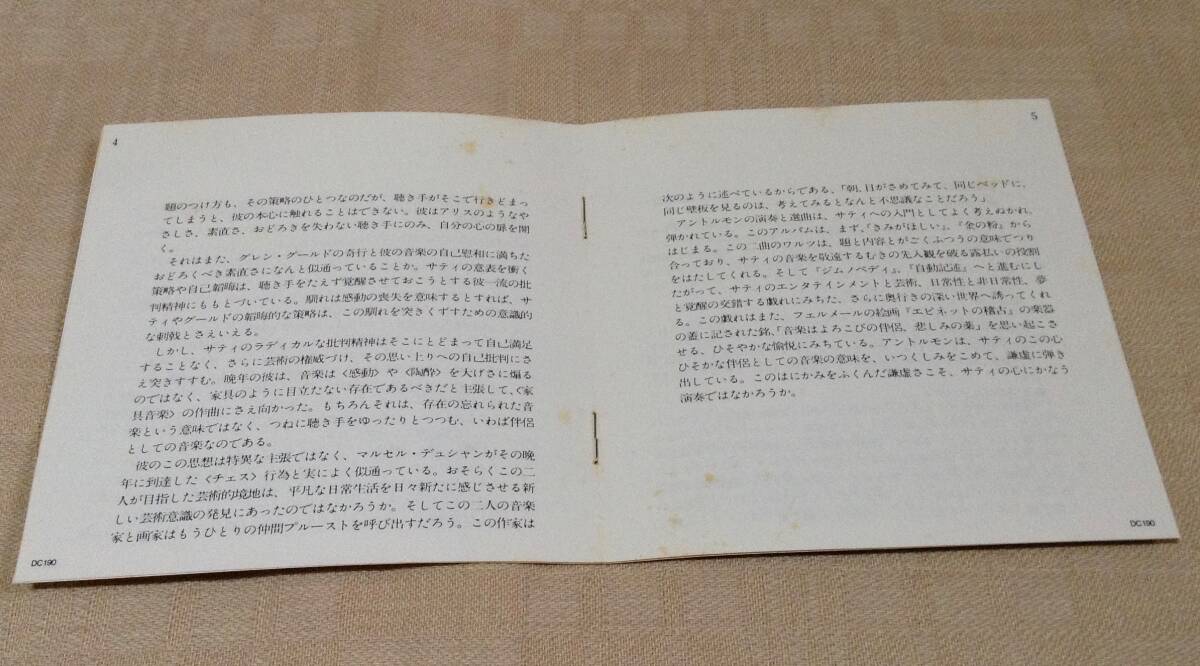 4
題のつけ方も、その策略のひとつなのだが、聴き手がそこで行きどまっ
てしまうと、彼の本心に触れることはできない。彼はアリスのようなや
さしさ、素直さ、おどろきを失わない聴き手にのみ、自分の心の扉を開
く。
それはまた、グレン・グールドの奇行と彼の音楽の自己慰和に満ちた
おどろくべき素直さになんと似通っていることか。サティの意表を衝く
策略や自己韜晦は、聴き手をたえず覚醒させておこうとする彼一流の批
判精神にももとづいている。馴れは感動の喪失を意味するとすれば、サ
ティやグールドの韜晦的な策略は、この馴れを突きくずすための意識的
な刺戟とさえいえる。
しかし、サティのラディカルな批判精神はそこにとどまって自己満足
することなく、さらに芸術の権威づけ、その思い上りへの自己批判にさ
え突きすすむ。晩年の彼は、音楽は〈感動〉や〈陶酔〉を大げさに煽る
のではなく、家具のように目立たない存在であるべきだと主張して、〈家
具音楽〉の作曲にさえ向かった。もちろんそれは、存在の忘れられた音
楽という意味ではなく、つねに聴き手をゆったりとつつむ、いわば伴侶
としての音楽なのである。
彼のこの思想は特異な主張ではなく、マルセル・デュシャンがその晩
年に到達した〈チェス〉行為と実によく似通っている。おそらくこの二
人が目指した芸術的境地は、平凡な日常生活を日々新たに感じさせる新
しい芸術意識の発見にあったのではなかろうか。そしてこの二人の音楽
家と画家はもうひとりの仲間プルーストを呼び出すだろう。この作家は
DC190
5
次のように述べているからである、「朝、目がさめてみて、同じベッドに、
同じ壁板を見るのは、考えてみるとなんと不思議なことだろう」
アントルモンの演奏と選曲は、サティへの入門としてよく考えぬかれ、
弾かれている。このアルバムは、まず、『きみがほしい』、『金の粉』から
はじまる。この二曲のワルツは、題と内容とがごくふつうの意味でつり
合っており、サティの音楽を敬遠するむきの先入観を破る露払いの役割
をはたしてくれる。そして『ジムノペディ』、『自動記述』へと進むにし
たがって、サティのエンタテインメントと芸術、日常性と非日常性、夢
と覚醒の交錯する戯れにみちた、さらに奥行きの深い世界へ誘ってくれ
る。この戯れはまた、フェルメールの絵画『エピネットの稽古』の楽器
の蓋に記された銘、「音楽はよろこびの伴侶、悲しみの薬」を思い起こさ
せる、ひそやかな愉悦にみちている。アントルモンは、サティのこの心
ひそかな伴侶としての音楽の意味を、いつくしみをこめて、謙虚に弾き
出している。このはにかみをふくんだ謙虚さこそ、サティの心にかなう
演奏ではなかろうか。
DC190